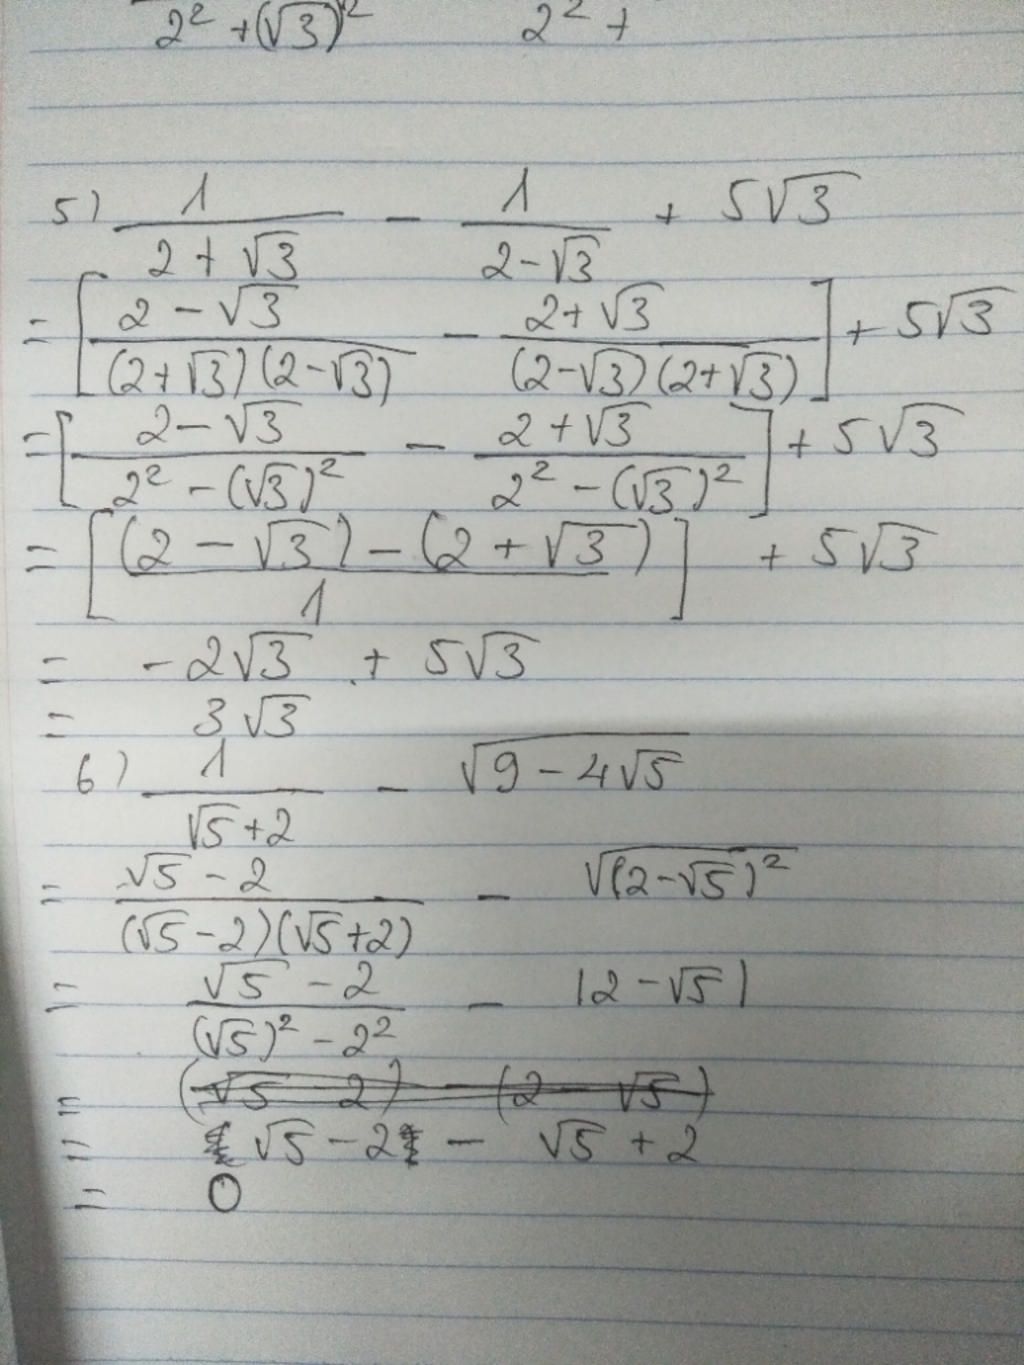 2² + (√3)² 2² +
5) 1/(2 + √3) - 1/(2 - √3) + 5√3
= [(2 - √3)/((2+√3)(2-√3)) - (2+√3)/((2-√3)(2+√3))] + 5√3
= [(2-√3)/(2² - (√3)²) - (2+√3)/(2² - (√3)²)] + 5√3
= [((2 - √3) - (2 + √3))/1] + 5√3
= -2√3 + 5√3
= 3√3
6) 1/(√5+2) - √(9 - 4√5)
= (√5 - 2)/((√5-2)(√5+2)) - √((2-√5)²)
= (√5 - 2)/((√5)² - 2²) - |2 - √5|
= (√5 - 2) - (2 - √5)
= √5 - 2 - √5 + 2
= 0